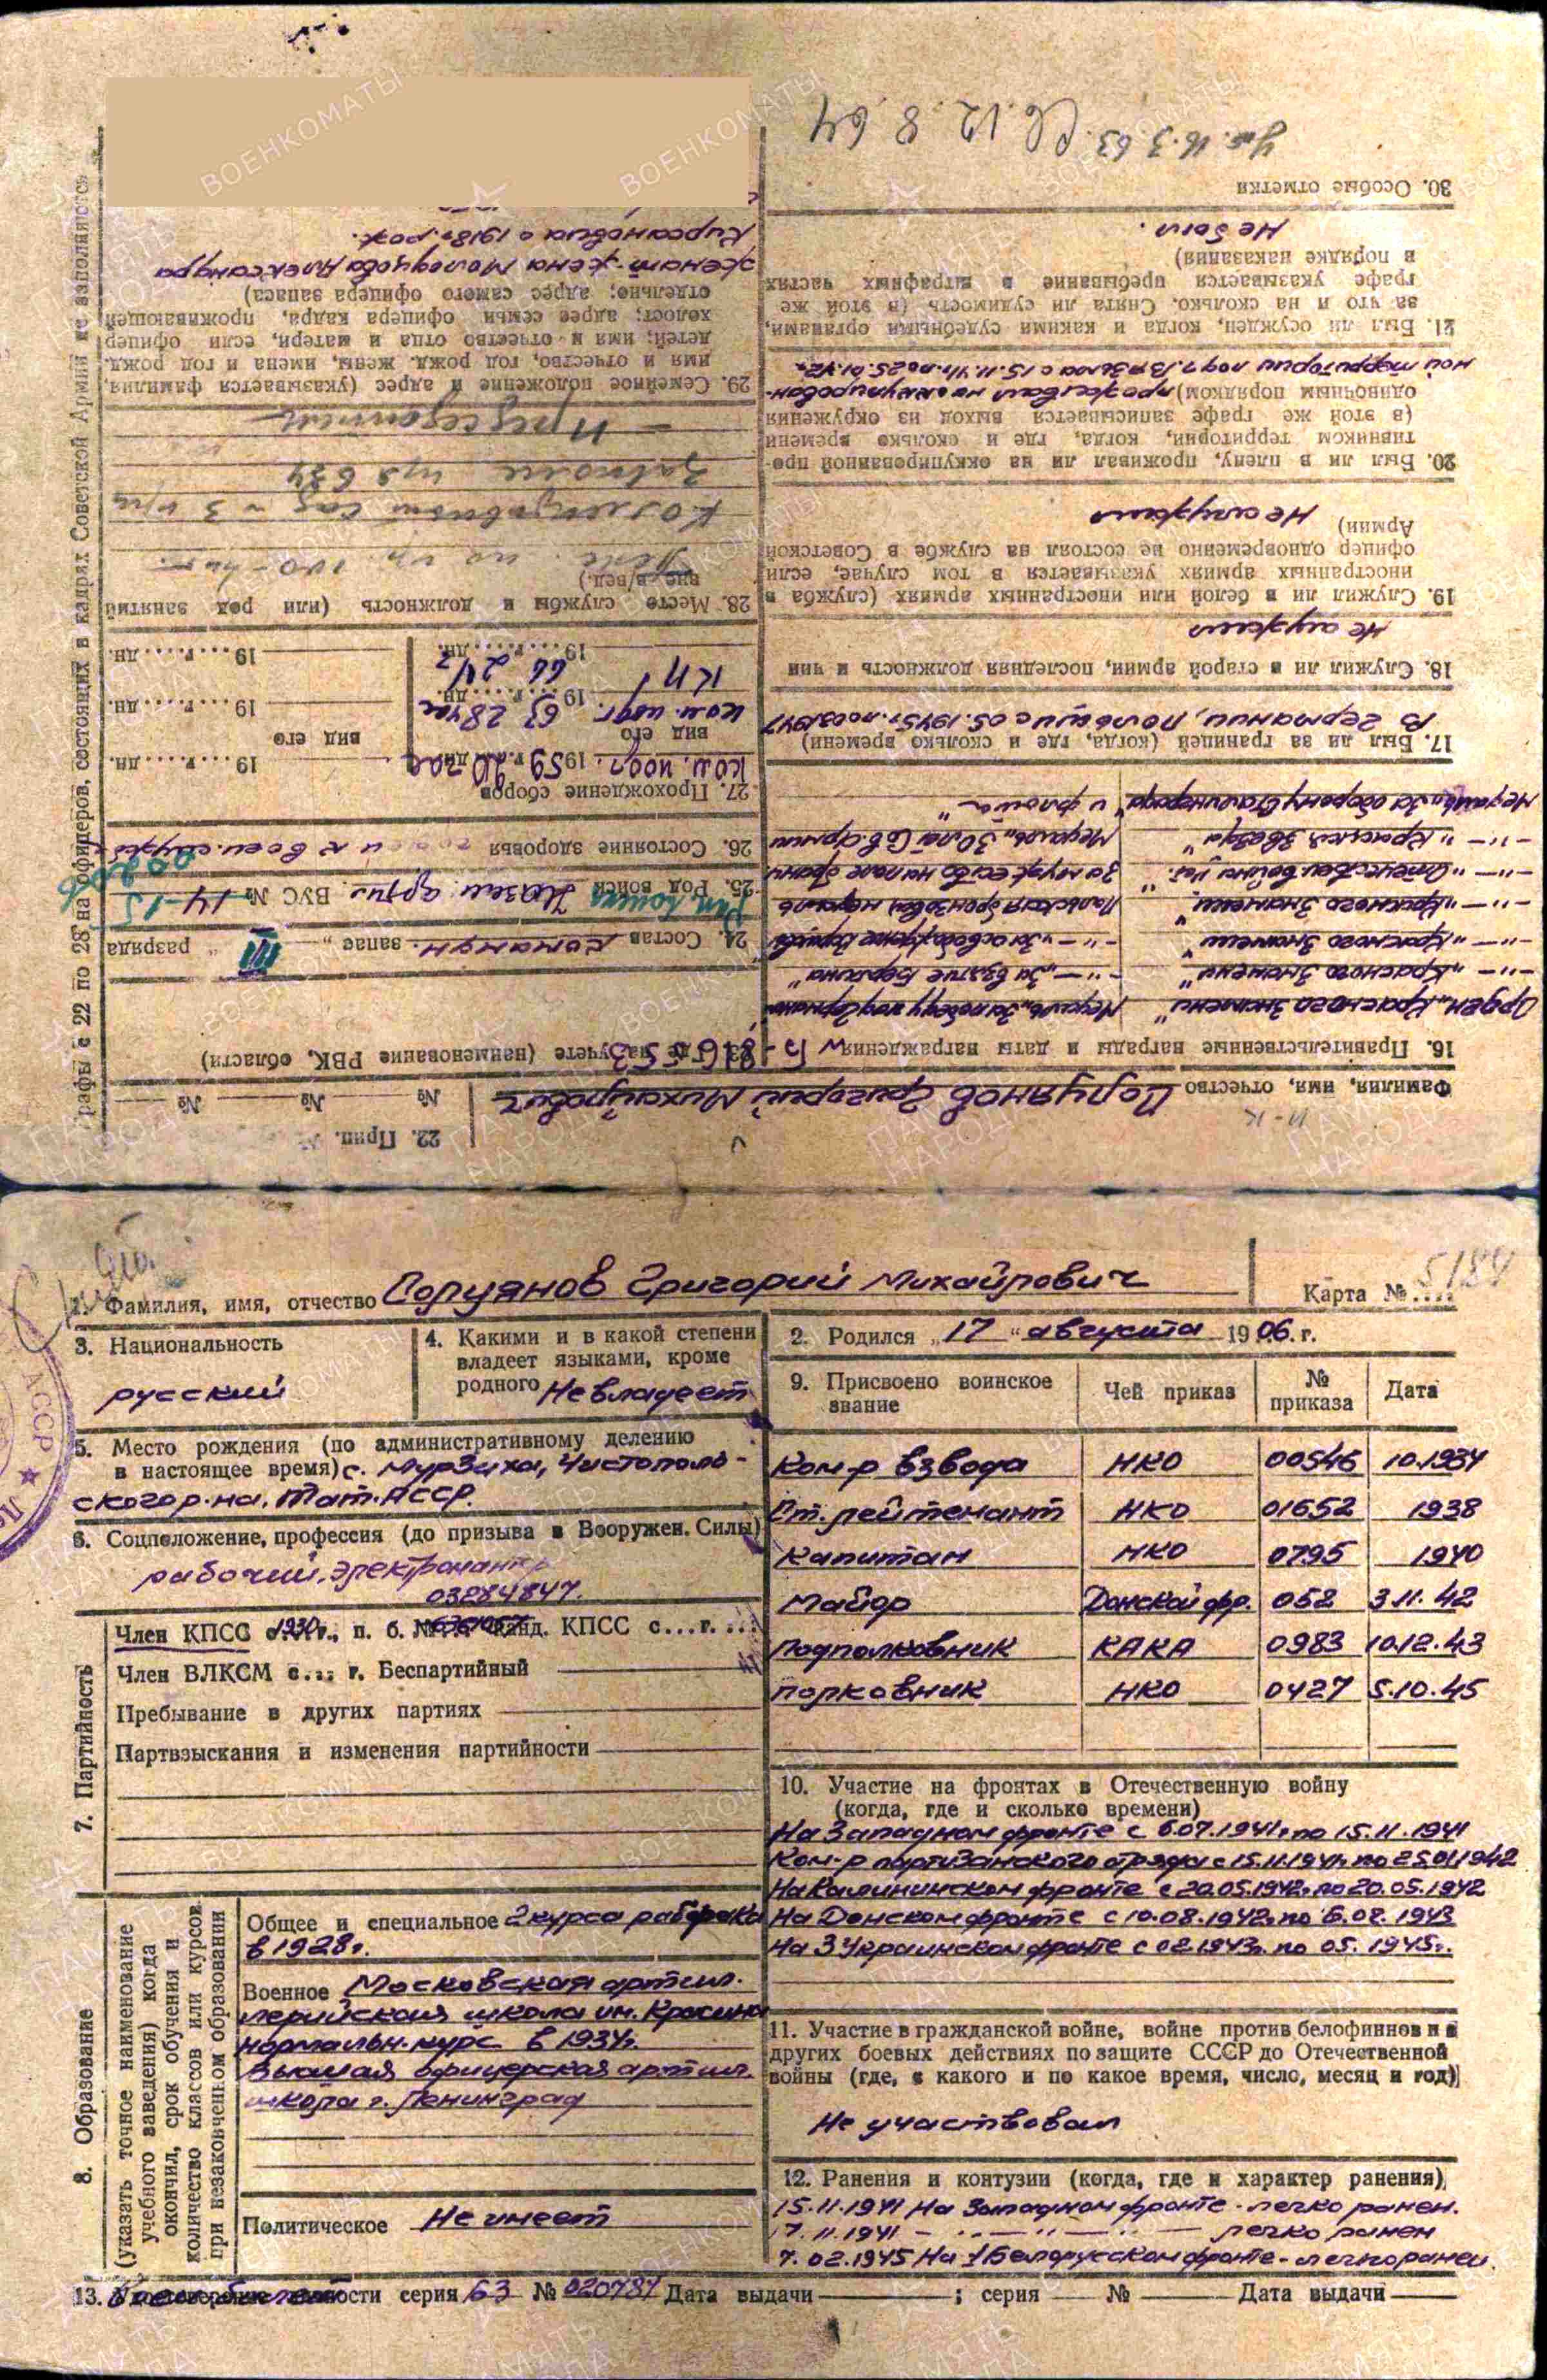 1. Фамилия, имя, отчество Солуянов Григорий Михайлович
Карта № .... 5184
3. Национальность
русский
4. Какими и в какой степени
владеет языками, кроме
родного Не владеет
2. Родился „17“ августа 1906. г.
5. Место рождения (по административному делению
в настоящее время) с. Мурзиха, Чистополь-
ского р-на, Тат. АССР.
6. Соцположение, профессия (до призыва в Вооружен. Силы)
рабочий, электромонтер
03284847.
7. Партийность
Член КПСС с 1930 г., п. б. № канд. КПСС с...г. ...
Член ВЛКСМ с... г. Беспартийный
Пребывание в других партиях
Партвзыскания и изменения партийности
8. Образование
(указать точное наименование
учебного заведения) когда
окончил, срок обучения и
количество классов или курсов
при незаконченном образовании
Общее и специальное 2 курса рабфака
в 1928г.
Военное Московская артил-
лерийская школа им. Красина
нормальн. курс в 1934г.
Высшая офицерская артил.
школа г. Ленинград
Политическое Не имеет
9. Присвоено воинское звание | Чей приказ | № приказа | Дата
Ком-р взвода НКО 00546 10.1934
Ст. лейтенант НКО 01652 1938
Капитан НКО 0795 1940
Майор Донской фр. 052 3.11.42
Подполковник КАКА 0983 10.12.43
Полковник НКО 0427 5.10.45
10. Участие на фронтах в Отечественную войну
(когда, где и сколько времени)
На Западном фронте с 6.07.1941г. по 15.11.1941
Ком-р партизанского отряда с 15.11.1941г. по 25.01.1942
На Калининском фронте с 20.05.1942г. по 20.05.1942
На Донском фронте с 10.08.1942г. по 6.02.1943
На 3 Украинском фронте с 02.1943г. по 05.1945г.
11. Участие в гражданской войне, войне против белофиннов и в
других боевых действиях по защите СССР до Отечественной
войны (где, с какого и по какое время, число, месяц и год)
Не участвовал
12. Ранения и контузии (когда, где и характер ранения)
15.11.1941 На Западном фронте - легко ранен.
17.11.1941 — " — " — легко ранен
7.02.1945 На 1 Белорусском фронте - легко ранен.
13. серия БЗ № 020484 Дата выдачи ; серия № Дата выдачи
Фамилия, имя, отчество Солуянов Григорий Михайлович
22. Прип. № № №
16. Правительственные награды и даты награждения
Орден „Красного Знамени“
— " — „Красного Знамени“
— " — „Красного Знамени“
— " — „Красного Знамени“
— " — „Отечествен. войны“
— " — „Красная Звезда“
Медаль „За оборону Сталинграда“
Медаль „За победу над Германией“
— " — „За взятие Берлина“
— " — „За освобождение Варшавы“
Польская бронзовая медаль
За мужество на поле брани
Медаль „30 лет Сов. Армии
и флота“
17. Был ли за границей (когда, где и сколько времени)
В Германии, Польше с 05.1945г. по 03.1947
18. Служил ли в старой армии, последняя должность и чин
Не служил
19. Служил ли в белой или иностранных армиях (служба в
иностранных армиях указывается в том случае, если
офицер одновременно не состоял на службе в Советской
Армии) Не служил
20. Был ли в плену, проживал ли на оккупированной про-
тивником территории, когда, где и сколько времени
(в этой же графе записывается выход из окружения
одиночным порядком) проживал на оккупирован-
ной территории под г. Вязьма с 15.11.41г. по 25.01.42г.
21. Был ли осужден, когда и какими судебными органами,
за что и на сколько. Снята ли судимость (в этой же
графе указывается пребывание в штрафных частях
в порядке наказания)
Не был.
30. Особые отметки
16.3.63. 12.8.64
23. Где на учете (наименование РВК, области)
24. Состав командн. запас „III“ разряда
25. Род войск Назем. артил. ВУС № 14-15
26. Состояние здоровья годен к воен. службе
27. Прохождение сборов
ком. подг. 1959 г. 20 час
вид его
ком. подг. 63 28 час
КП 66 24
19....г....дн.
вид его
19....г....дн.
19....г....дн.
28. Место службы и должность (или род занятий
вне в/вед.)
Коллективный сад № 3
Председатель
29. Семейное положение и адрес (указывается фамилия,
имя и отчество, год рожд. жены, имена и год рожд.
детей; имя и отчество отца и матери, если офицер
холост; адрес семьи офицера кадра, проживающей
отдельно; адрес самого офицера запаса)
Женат - жена Молодцова Александра
Кирсановна с 1918г. рож.
Графы с 22 по 28 на офицеров, состоящих в кадрах Советской Армии не заполняются
ВОЕНКОМАТЫ
ПАМЯТЬ НАРОДА